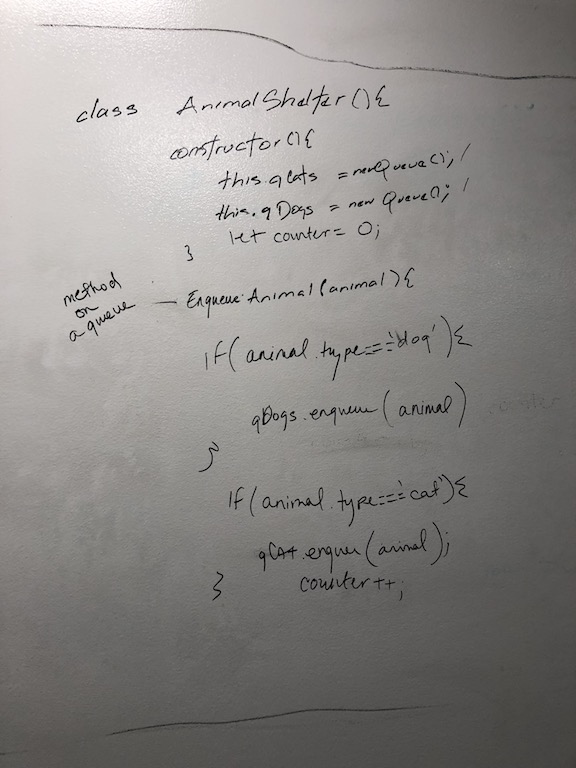 class AnimalShelter(){
constructor(){
this.qCats = new Queue();
this.qDogs = new Queue();
let counter = 0;
}
method
on
a queue
— EnqueueAnimal(animal){
if(animal.type==='dog'){
qDogs.enqueue(animal)
}
if(animal.type==='cat'){
qCat.enqueu(animal);
} counter++;